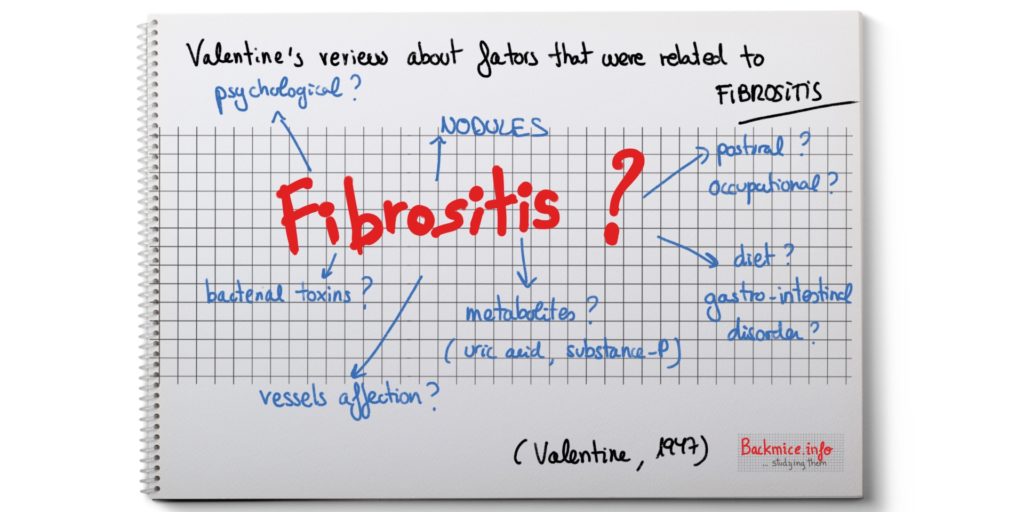 Valentine's review about fators that were related to
FIBROSITIS
psychological?
NODULES
Fibrositis ?
postural ?
occupational?
diet ?
gastro-intestinal
disorder?
bacterial toxins?
metabolites ?
(uric acid, substance-P)
vessels affection?
(Valentine, 1947)
Backmice.info
... studying them